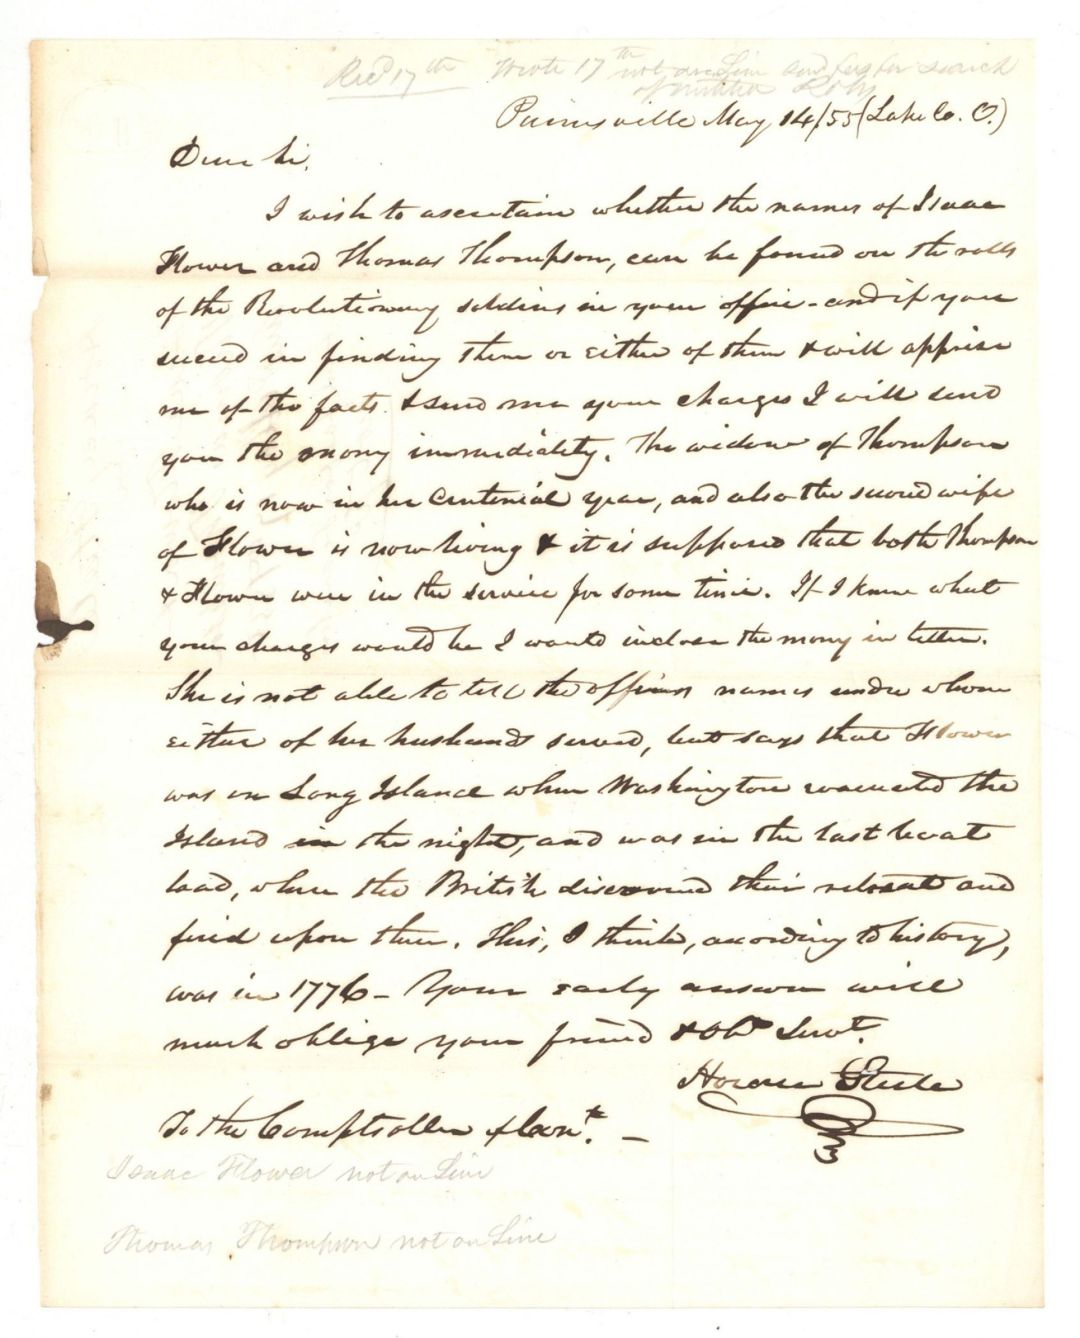 Recd 17th Wrote 17th not on Line send fee for search
of militia Rolls
Painesville May 14/55 (Lake Co. O.)
Dear Sir,
I wish to ascertain whether the names of Isaac
Flower and Thomas Thompson, can be found on the rolls
of the Revolutionary soldiers in your office - and if you
succeed in finding them or either of them & will apprise
me of the facts & send me your charges I will send
you the mony immediately. The widow of Thompson
who is now in her centenial year, and also the second wife
of Flower is now living & it is supposed that both Thompson
& Flower were in the service for some time. If I knew what
your charges would be I would inclose the mony in letter.
She is not able to tell the officers names under whom
either of her husbands served, but says that Flower
was on Long Island when Washington evacuated the
Island in the night, and was in the last boat
load, when the British discovered their retreat and
fired upon them. This, I think, according to history,
was in 1776 - Your early answer will
much oblige your friend & obt Servt.
Horace Steele
To the Comptroller of Cont. -
Isaac Flower not on Line
Thomas Thompson not on Line